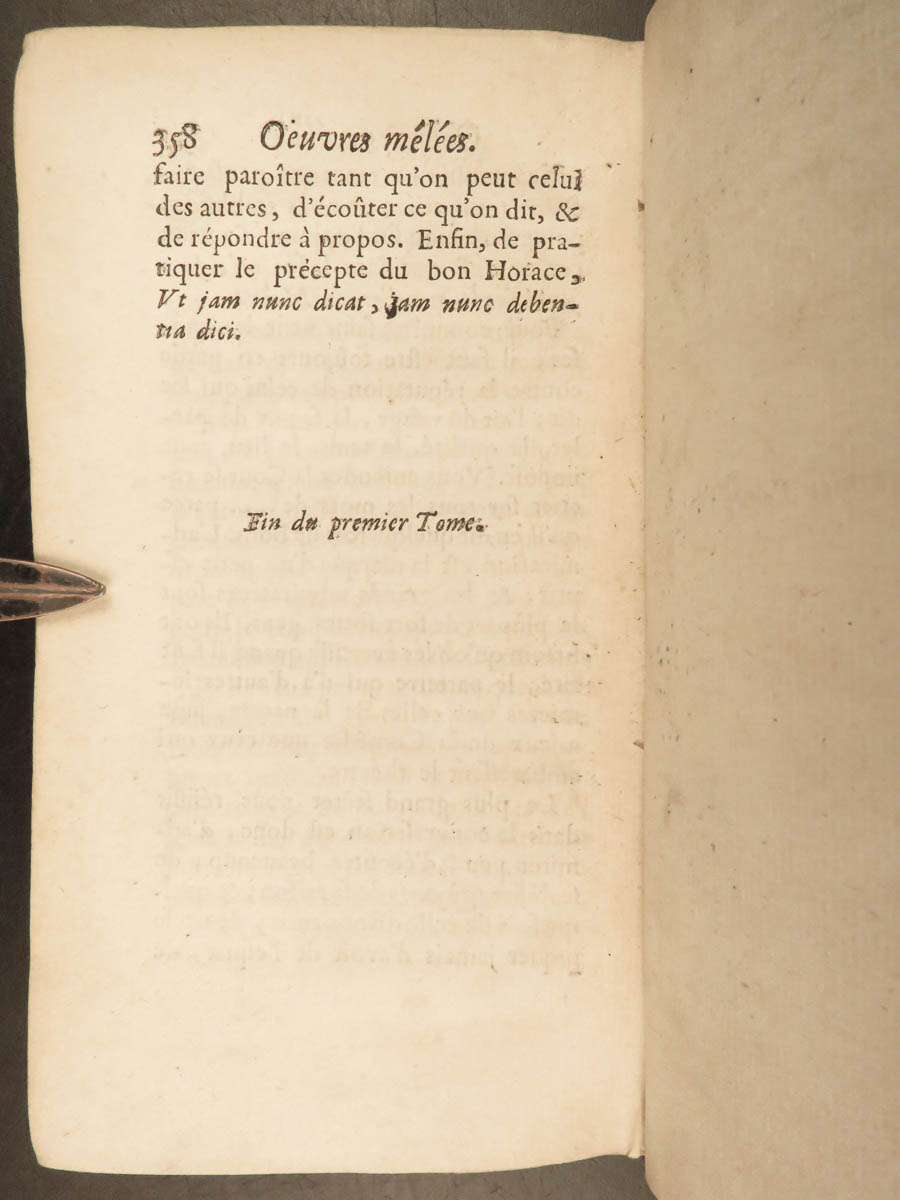 358 Oeuvres mêlées.
faire paroître tant qu'on peut celui
des autres, d'écoûter ce qu'on dit, &
de répondre à propos. Enfin, de pra-
tiquer le précepte du bon Horace,
Vt jam nunc dicat, jam nunc deben-
tia dici.
Fin du premier Tome.